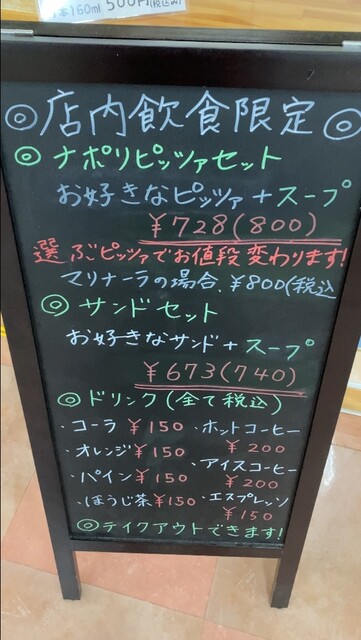 本160ml 500円(税込み)
◎店内飲食限定◎
◎ナポリピッツァセット
お好きなピッツァ+スープ
¥728(800)
選ぶピッツァでお値段変わります!
マリナーラの場合、¥800(税込
◎サンドセット
お好きなサンド+スープ
¥673(740)
◎ドリンク(全て税込)
・コーラ ¥150
・オレンジ¥150
・パイン¥150
・ほうじ茶¥150
・ホットコーヒー
¥200
・アイスコーヒー
¥200
・エスプレッソ
¥150
◎テイクアウトできます!